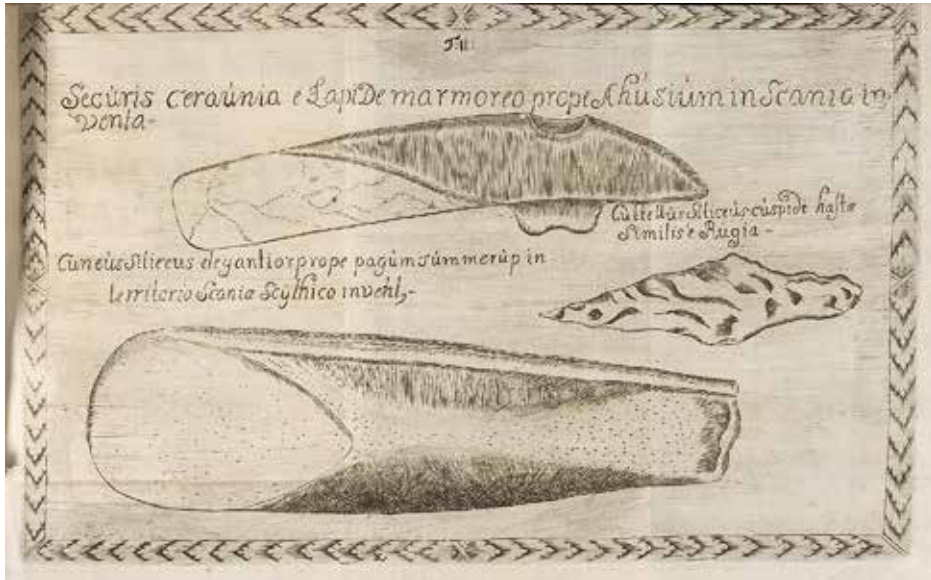 T.II.
Securis Ceraunia e LapiDe marmoreo prope Ahusium in Scania in-
venta-
Cultellus Siliceus cuspide hastæ
Similis e Rugia-
Cuneus Siliceus elegantior prope pagum summerup in
territorio Scaniæ Scythico invent,-